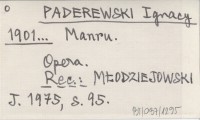 PADEREWSKI Ignacy
1901... Manru.
Opera.
Rec: MŁODZIEJOWSKI
J. 1975, s. 95.